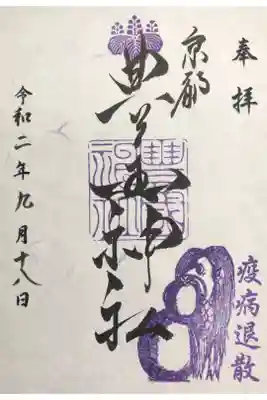 奉拝
京都
豊國神社
令和二年九月十八日
疫病退散